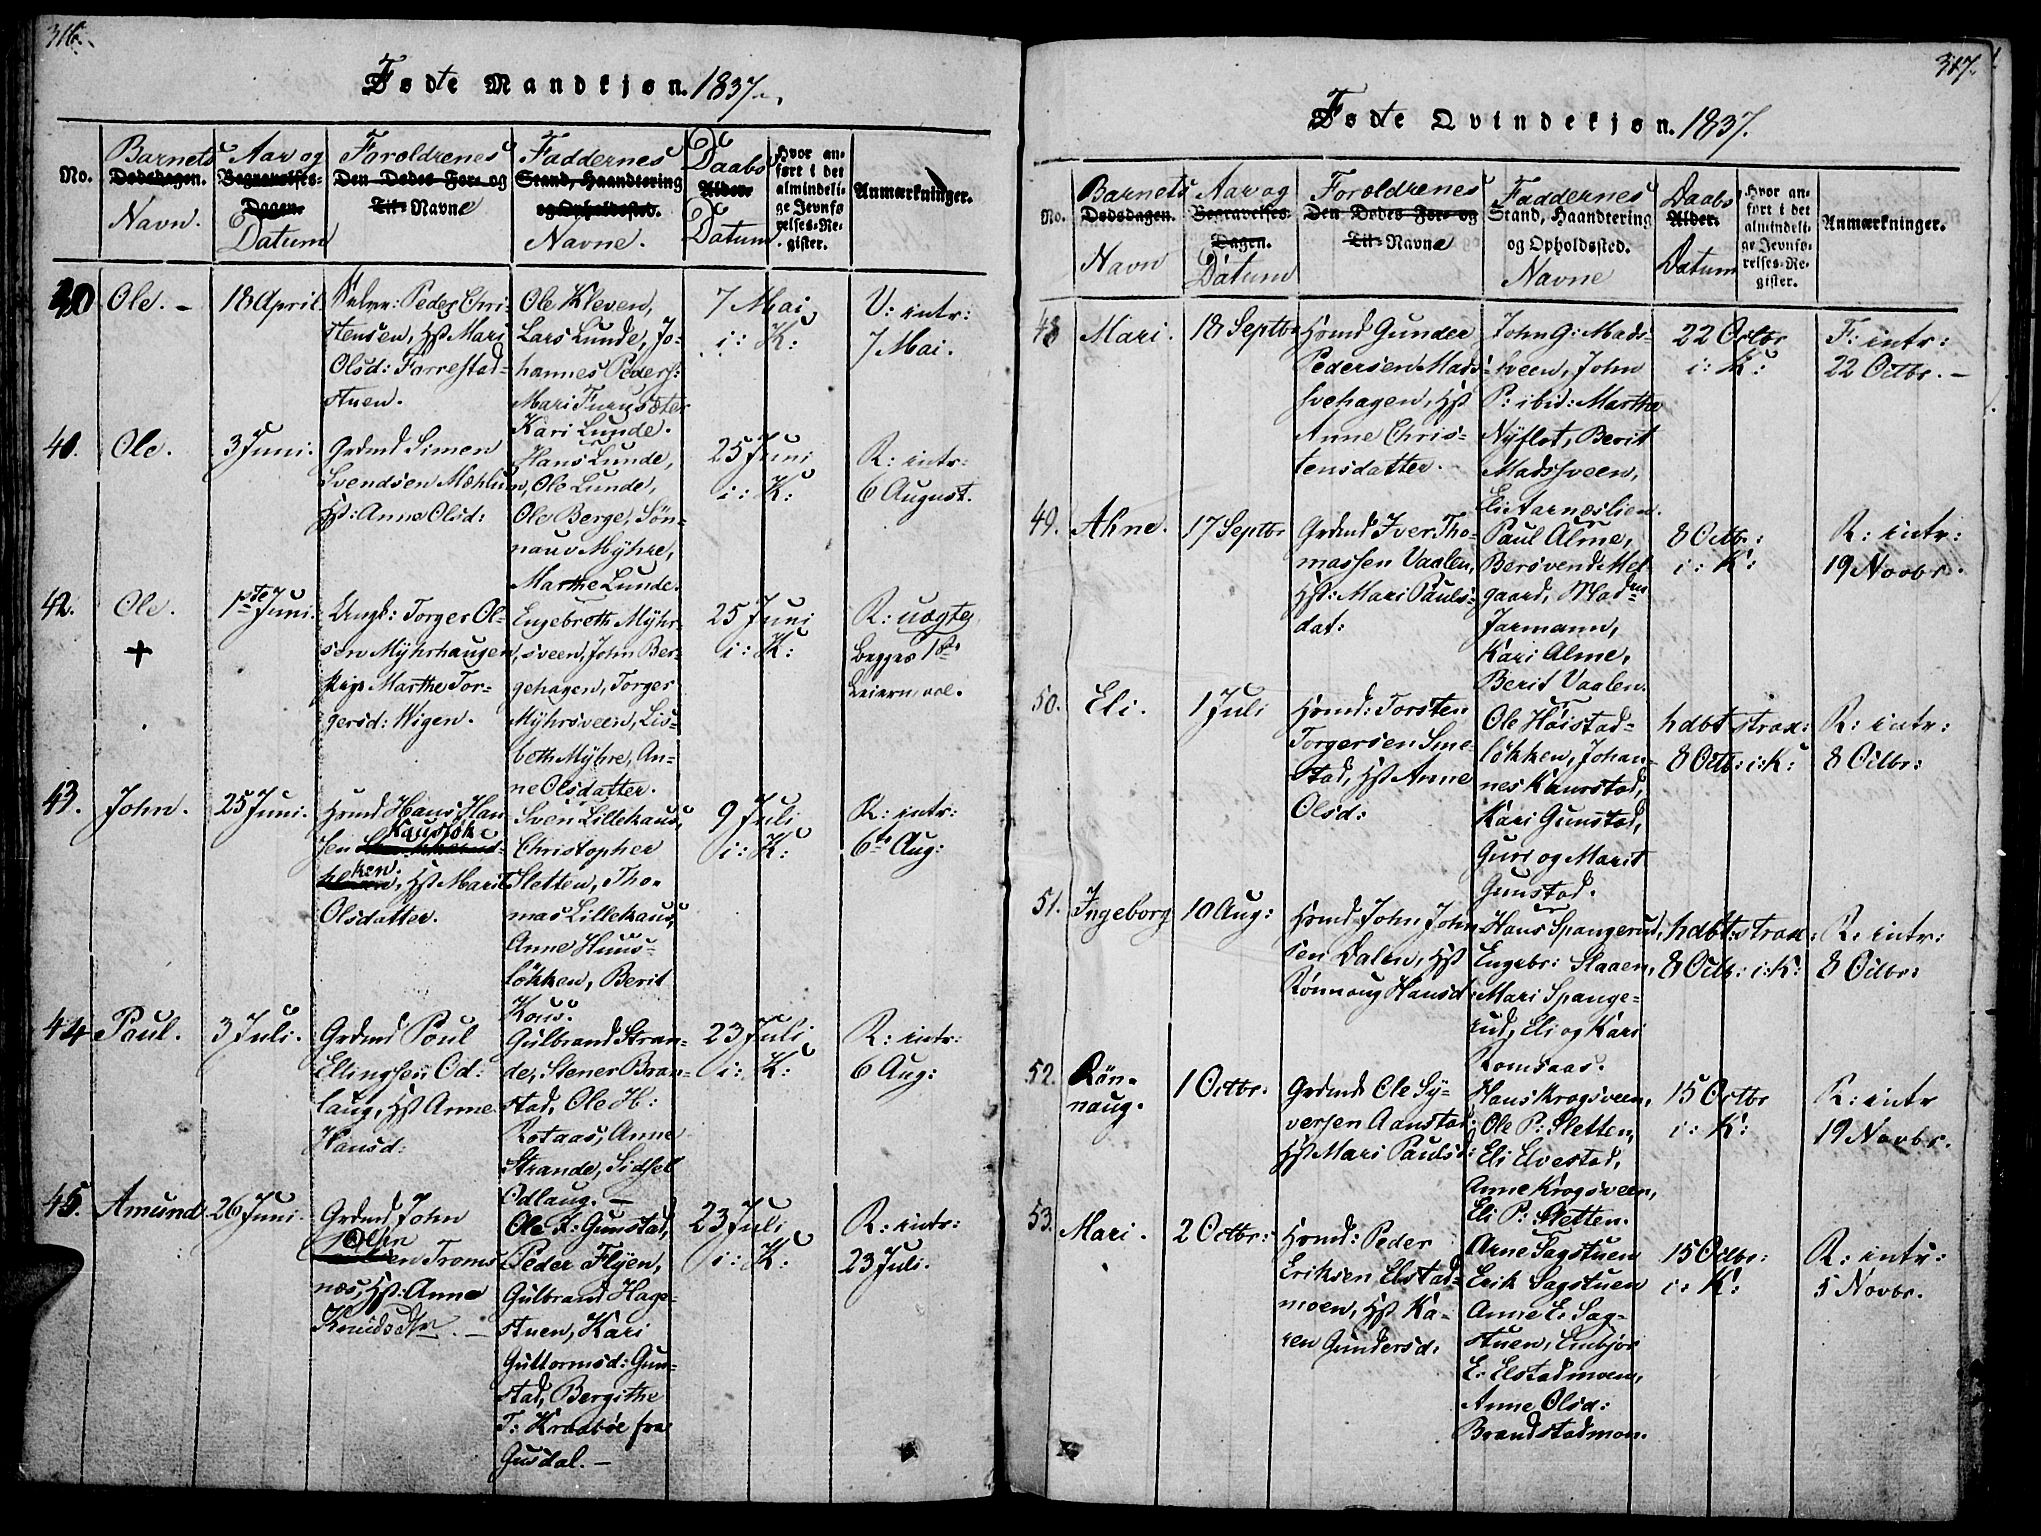 316.
Fødte Mandkjøn. 1837.
No.
Barnets
Dødsdagen.
Navn.
Aar og
Begravelses-
Dagen.
Datum
Foroldrenes
Den Dødes For- og
Til- Navne
Faddernes
Stand, Haandtering
og Opholdssted.
Navne.
Daabs
Alder.
Datum.
Hvor an-
ført i det
almindeli-
ge Jevnfø
relses-Re-
gister.
Anmærkninger.
40
Ole. -
18 April
Peder Chri-
stensen, Hst Mari
Olsd: Forrestad-
stuen.
Ole Kleven,
Lars Lunde, Jo-
hannes Peders:
Mari Furusæter
Kari Lunde.
7 Mai
i: K:
U: intr:
7 Mai.
41.
Ole.
3 Juni.
Grdmd Simen
Svendsen Mæhlum,
Hst: Anne Olsd:
Hans Lunde,
Ole Lunde,
Ole Berge, Søn-
nauv Mÿhre,
Marthe Lunde.
25 Juni
i: K:
R: intr:
6 August.
42.
Ole.
+
1ste Juni.
Ungk: Torger Ol-
sen Mÿhrhaugen,
Pige Marthe Tor-
gersd: Wigen.
Engebreth Mÿhr-
sveen, John Ber-
gehagen, Torger
Mÿhrsveen, Lis-
beth Mÿhre, An-
ne Olsdatter.
25 Juni
i: K:
R: uægte,
begges 1ste
Leiermaal.
43.
John.
25 Juni.
Hsmd Hans Han
sen
Kausløk
ken, Hst Marit
Olsdatter.
Sven Lillekaus,
Christopher
Sletten, Tho-
mas Lillekaus,
Anne Huus-
løkken, Berit
Kous.
9 Juli
i: K:
R: intr:
6te Aug:
44
Paul.
3 Juli.
Grdmd Poul
Ellingsen Od:
laug, Hst Anne
Hansd:
Gulbrand Stran-
de, Stener Bran-
stad, Ole H:
Rotaas, Anne
Strande, Sidsel
Odlaug. -
23 Juli
i: K:
R: intr:
6 Aug:
45.
Amund.
26 Juni.
Grdmd John
Olsen Troms
næs, Hst: Anne
Knudsdtr. -
Ole K: Gunstad,
Peder Flÿen,
Gulbrand Hage-
stuen, Kari
Guttormsd: Gun-
stad, Bergithe
T: Kraabøe fra
Gusdal. -
23 Juli
i: K:
R: intr:
23 Juli.
317.
Fødte Qvindekjøn. 1837.
No.
Barnets
Dødsdagen.
Navn
Aar og
Begravelses-
Dagen.
Datum
Foroldrenes
Den Dødes For- og
Til- Navne
Faddernes
Stand, Haandtering
og Opholdssted.
Navne
Daabs
Alder.
Datum
Hvor an-
ført i det
almindeli-
ge Jevnfø-
relses-Re-
gister.
Anmærkninger.
48
Mari.
18 Septbr
Hsmd Gunder
Pedersen Mads-
svehagen, Hst
Anne Chris-
tensdatter.
John G: Mads-
sveen, John
P: ibid: Marthe
Nÿflot, Berit
Madssveen,
Eli Aarnæslien.
22 Octbr
i: K:
F: intr:
22 Octbr. -
49.
Ahne.
17 Septbr
Grdmd Iver Tho-
massen Vaalen,
Hst: Mari Pauls-
dat:
Paul Alme,
Bersvend Mel
gaard, Madm
Jarmann,
Kari Alme,
Berit Vaalen.
8 Octbr:
i: K:
R: intr:
19 Novbr.
50.
Eli.
1 Juli
Hsmd: Torsten
Torgersen Sme-
stad, Hst Anne
Olsd:
Ole Høistad-
løkken, Johan-
nes Kaurstad,
Kari Gunstad,
Guri og Marit
Gunstad.
hdbt strax:
8 Octb: i: K:
R: intr:
8 Octbr:
51.
Ingeborg
10 Aug:
Hsmd John John
sen Dalen, Hst
Rønnaug Hansd:
Hans Spangerud,
Engebr: Slaaen,
Mari Spange-
rud, Eli og Kari
Romsaas.
hdbt: strax:
8 Octb: i: K:
R: intr:
8 Octbr:
52.
Røn-
naug.
1 Octbr.
Grdmd Ole Sÿ-
versen Aanstad,
Hst Mari Paulsd:
Hans Krogsveen,
Ole P: Sletten,
Eli Elvestad,
Anne Krogsveen,
Eli P: Sletten.
15 Octbr
i: K:
R: intr
19 Novbr.
53.
Mari.
2 Octbr:
Hsmd: Peder
Eriksen Elstad-
moen, Hst Ka-
ren Gundersd.
Arne Sagstuen
Erik Sagstuen
Anne E: Sag-
stuen, Embjør
E: Elstadmoen,
Anne Olsd:
Brandstadmon.
15 Octbr:
i: K:
R: intr:
5 Novbr.